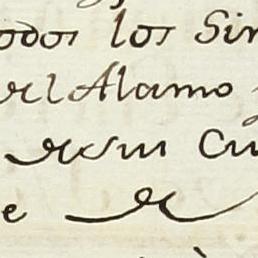 odos los Sin
del Alamo
de su Cu
e de